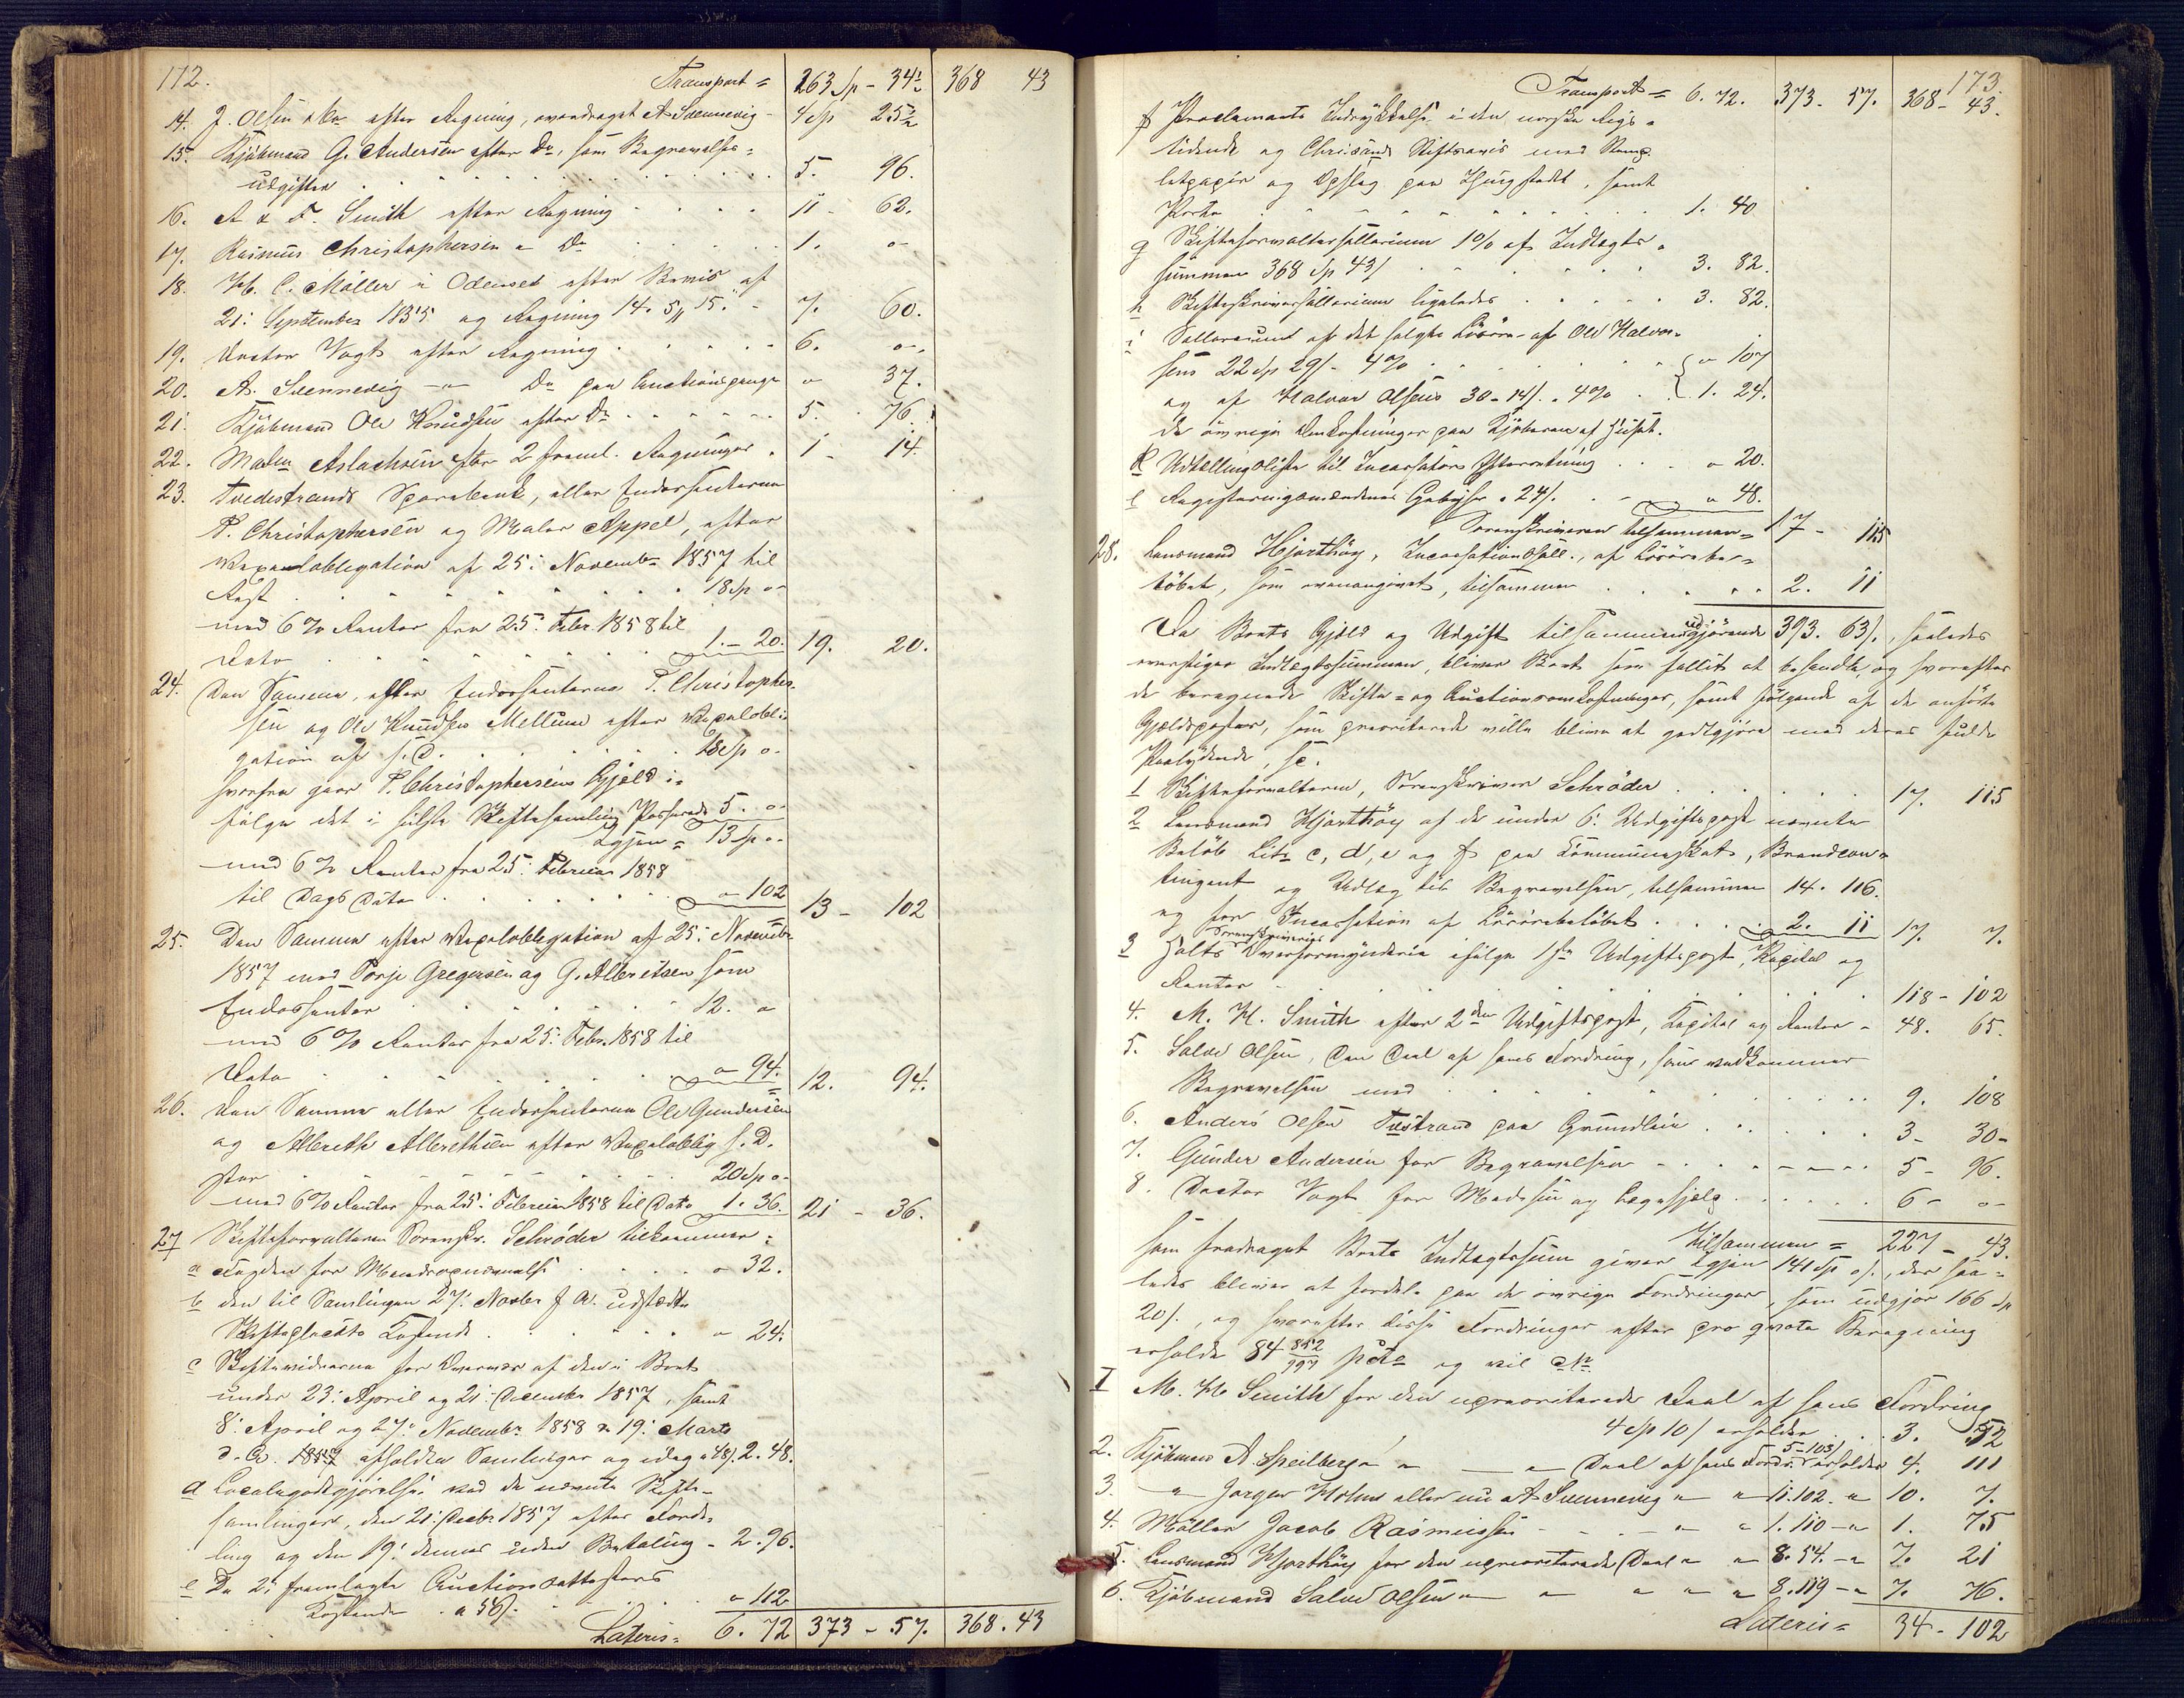 172.
Transport = 263 Sp - 34½ 368 43
14. J. Olsen & Co efter Regning, overdraget A Svennevig - 4 Sp 25½
15. Kjøbmand G. Andersen efter Do, som Begravelses=
udgifter 5. 96.
16. A & F. Smith efter Regning 11 - 62.
17. Rasmus Christophersen " Do 1. o-
18. H. C. Møller i Odense efter Beviis af
21: September 1835 og Regning 14. 5, 15. - 7. 60.
19. Doctor Vogt efter Regning 6. o-.
20. A. Svennevig -"- Do paa Auctionspenge " 37.
21. Kjøbmand Ole Knudsen efter Do 5. 76.
22. Madm Aslachsen efter 2 freml. Regninger. 1 - 14.
23. Tvedestrands Sparebank, eller Endossenterne
P. Christophersen og Maler Appel, efter
Vexelobligation af 25: Novembr 1857 til
Rest 18 Sp o-
med 6 % Renter fra 25: Febr. 1858 til
Dato 1. - 20. 19. 20.
24. Den Samme, eller Endossenterne P. Christopher-
sen og Ole Knudsen Mellum efter Vexelobli-
gation af s. D. 18 Sp o-
hvorfra gaar P. Christophersens Gjeld i-
følge det i sidste Skiftesamling Passerede 5. o-
Igjen = 13 Sp o-
med 6 % Renter fra 25: Februar 1858
til Dags Dato " 102 13 - 102
25. Den Samme efter Vexelobligation af 25: Novembr
1857 med Terje Gregersen og G. Albretsen som
Endossenter 12. "
med 6 % Renter fra 25: Febr. 1858 til
Dato " 94. 12. 94.
26. Den Samme eller Endossenterne Ole Gundersen
og Albreth Albrethsen efter Vexelobligs. D.
stor 20 Sp o-
med 6 % Renter fra 25: Februar 1858 til Dato 1. 36. 21 - 36.
27 Skifteforvalteren Sorenskr. Schrøder tilkommer:
a " 32.
b den til Samlingen 27: Novbr f. A. udstædte
Skifteplacats Kostende " 24.
c Skiftevidnerne for Overvær af den i Boet
under 23: April og 21: December 1857, samt
8: April og 27: November 1858 & 19: Marts
d. A. afholdte Samlinger og idag a 48/. 2. 48.
d Localegodtgjørelse ved de nævnte Skifte-
samlinger, den 21: Decbr 1857 efter Forde-
ling og den 19: dennes uden Betaling - 2. 96.
e De 2: fremlagte Auctionsattesters
Kostende a 56/. " 112
Lateris = 6. 72 373 - 57. 368. 43
173.
Transport = 6. 72. 373. 57. 368 - 43.
f Proclamaets Indrykkelse i den norske Rigs-
tidende og Chrisands Stiftsavis med Stemp-
letpapir og Opslag paa Thingstedet, samt
Porto 1. 40
g Skifteforvaltersallarium 1 % af Indtægts-
summen 368 Sp 43/ 3. 82.
h Skifteskriversallarium ligeledes 3. 82.
i Sallarium af det solgte Løsøre - af Ole Halvor-
sens 22 Sp 29/ - 4 % " 107
og af Halvor Olsens 30 - 14/. - 4 % 1. 24.
de øvrige Omkostninger paa Kjøberen af Huset.
k Udtællingsliste til Incassators Efterretning " 20.
l Registeringsmændenes Gebyhr a 24/. " 48.
Sorenskriveren tilsammen = 17 - 115
28. Lensmand Hjorthøy, Incassationssall., af Løsørebe-
løbet, som ovenangivet, tilsammen 2. 11
Da Boets Gjæld og Udgift tilsammen udgjørende 393. 63/., saaledes
overstiger Indtægtssummen, bliver Boet som fallit at behandle, og hvorefter
de beregnede Skifte= og Auctionsomkostninger, samt følgende af de anførte
Gjeldsposter, som prioriterede ville blive at godtgjøre med deres fulde
Paalydende, sc.
1 Skifteforvalteren, Sorenskriver Schrøder 17. 115
2 Lensmand Hjorthøy af de under 6: Udgiftspost nævnte
Beløb Litr c, d, e og f paa Communeskat, Brandcon-
tingent og Udlæg til Begravelsen, tilsammen 14. 116.
og for Incassation af Løsørebeløbet 2. 11 17. 7.
3 Holts Sorenskriveries Overformynderie ifølge 1ste Udgiftspost, Kapital og
Renter 118 - 102
4. M. H. Smith efter 2den Udgiftspost, Kapital og Renter - 48. 65.
5. Salve Olsen, den Deel af hans Fordring, som vedkommer
Begravelsen med 9. 108
6. Anders Olsen paa Grundleie 3 - 30-
7. Gunder Andersen for Begravelsen 5 - 96.
8. Doctor Vogt for Medisin og Lægehjælp 6 - o-
Tilsammen = 227 - 43.
som fradraget Boets Indtægtssum giver Igjen 141 Sp o/., der saa-
ledes bliver at fordele paa de øvrige Fordringer, som udgjør 166 Sp
20/., og hvorefter disse Fordringer efter pro qvota Beregning
erholde 84 852/997 pCt og vil
I M. H. Smith for den uprioriterede Deel af hans Fordring
4 Sp 10/ erholder 3. 52
2. Kjøbmand A. Speilberg " " Deel af hans Fordr. 5 - 103/ erholder 4. 111
3. " Jørgen Holm eller nu A Svennevig " " 11. 102. " 10. 7.
4. Møller Jacob Rasmussen " " 1. 110 - " 1. 75
5. Lensmand Hjorthøy for den uprioriterede Deel " " 8. 54. - " 7. 21
6. Kjøbmand Salve Olsen " " " " 8. 119 - " 7. 76.
Lateris = 34 - 102